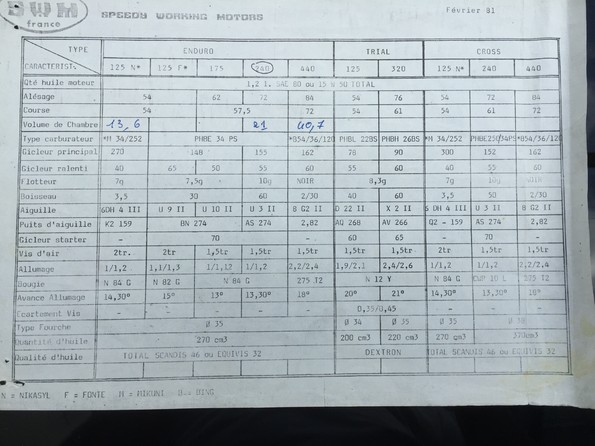 SWM SPEEDY WORKING MOTORS Février 81
france
TYPE ENDURO TRIAL CROSS
CARACTERISTI 125 N* 125 F* 175 240 440 125 320 125 N* 240 440
Qté huile moteur 1,2 l. SAE 80 ou 15 W 50 TOTAL
Alésage 54 62 72 84 54 76 54 72 84
Course 54 57,5 72 61 54 61 54 61 72
Volume de Chambre 13,6 21 40,7
Type carburateur *M 34/252 PHBE 34 PS *B54/36/120 PHBL 22BS PHBH 26BS *M 34/252 *B54/36/120
Gicleur principal 270 148 155 162 78 90 300 152 162
Gicleur ralenti 40 65 50 55 60 55 60 40 55 60
Flotteur 7g 7,5g 10g NOIR 8,3g 7g 10g
Boisseau 3,5 30 60 2/30 40 60 3,5 50 2/30
Aiguille 6DH 4 III U 9 II U 10 II U 3 II 8 G2 II D 22 II X 2 II 6 DH 4 III U 3 II 8 G2 II
Puits d'aiguille K2 159 BN 274 AS 274 2,82 AQ 268 AV 266 Q2 - 159 AS 274 2,82
Gicleur starter - 70 - 60 65 - 70 -
Vis d'air 2tr. 2tr 1,5tr 1,5tr 1,5tr 1,5tr 1,5tr 2tr. 1,5tr 1,5tr
Allumage 1/1,2 1,1/1,3 1/1,12 1/1,2 2,2/2,4 1,9/2,1 2,4/2,6 1/1,2 1/1,2 2,2/2,4
Bougie N 84 G N 82 G N 84 G 275 32 N 12 Y N 84 G
Avance Allumage 14,30° 15° 13° 13,30° 18° 20° 21° 14,30° 13,30° 18°
Ecartement Vis 0,35/0,45
Type Fourche Ø 35 Ø 34 Ø 35 Ø 35 Ø 38
Quantité d'huile 270 cm3 200 cm3 220 cm3 270 cm3 370cm3
Qualité d'huile TOTAL SCANDIS 46 ou EQUIVIS 32 DEXTRON TOTAL SCANDIS 46 ou EQUIVIS 32
N = NIKASYL F = FONTE M = MIKUNI B = BING